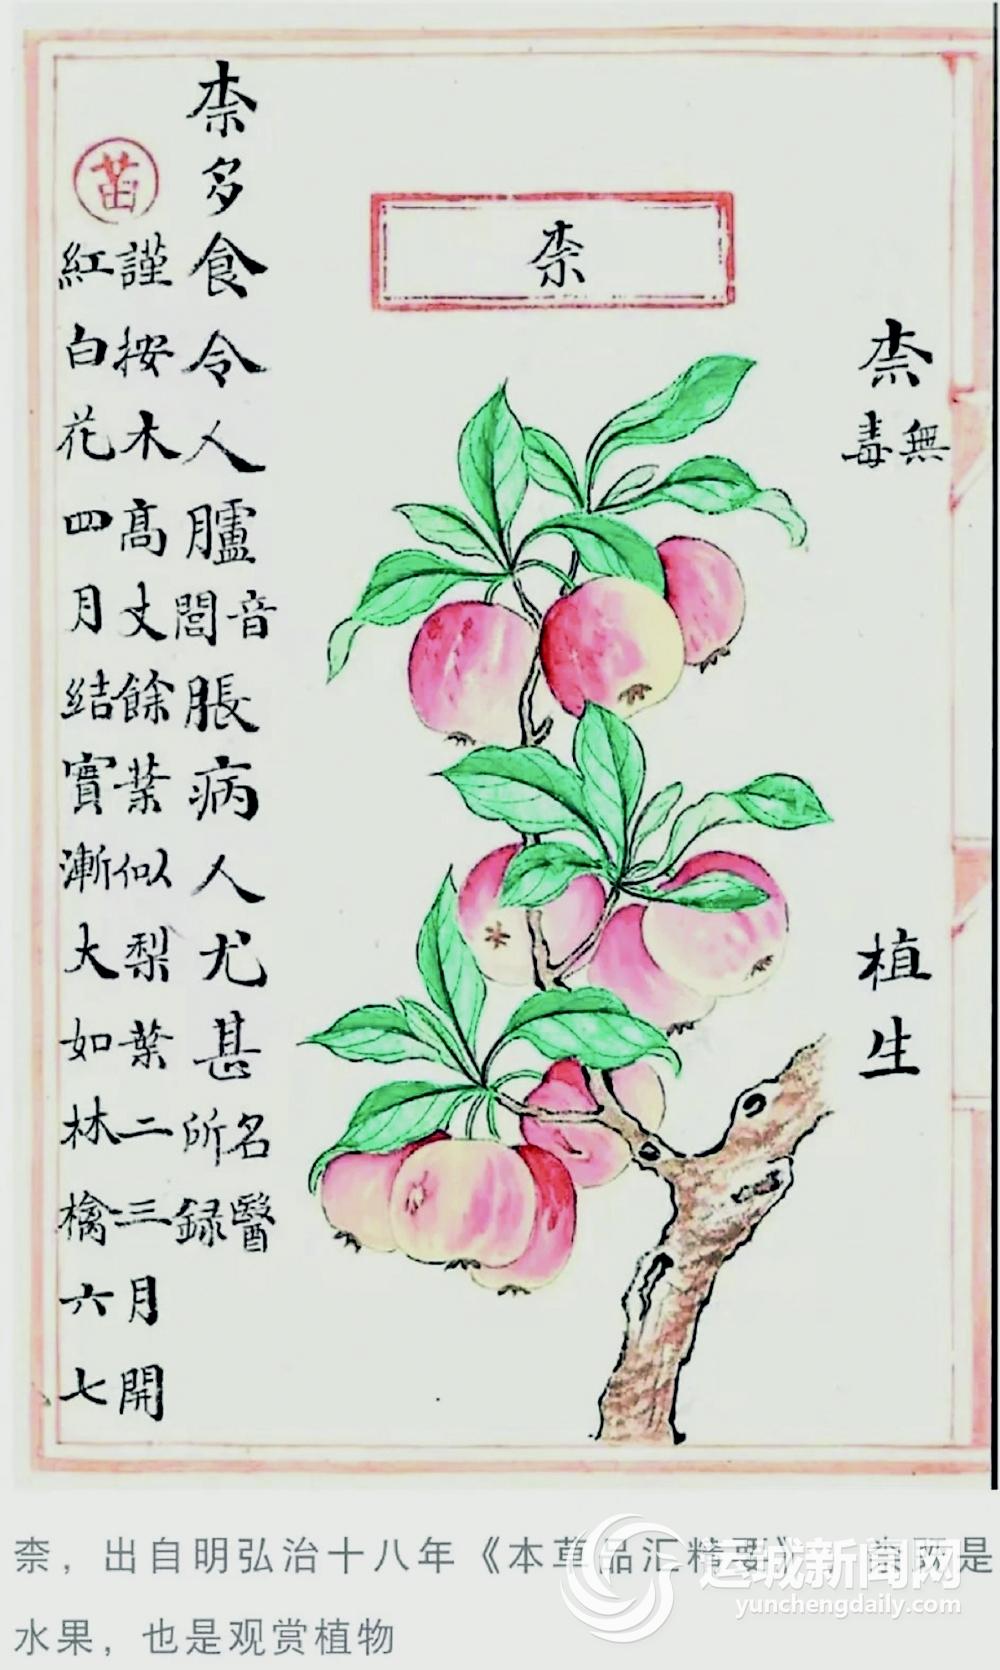 柰
無
毒
植生
柰
柰多食令人臚音閭脹病人尤甚名醫所録
苗
謹按木高丈餘葉似梨葉二三月開
紅白花四月結實漸大如林檎六七
柰，出自明弘治十八年《本草品汇精要》是
水果，也是观赏植物
运城新闻网
yunchengdaily.com